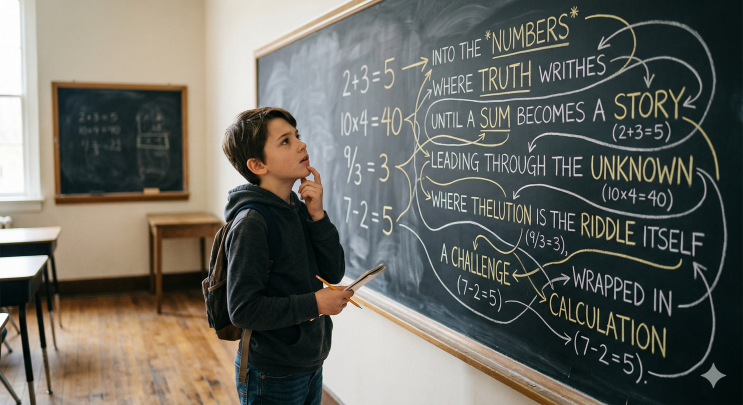 2+3=5
10×4=40
9/3=3
7-2=5
INTO THE *NUMBERS*
WHERE TRUTH WRITHES
UNTIL A SUM BECOMES A STORY
(2+3=5)
LEADING THROUGH THE UNKNOWN
(10×4=40)
WHERE THELUTION IS THE RIDDLE ITSELF
(9/3=3),
A CHALLENGE
(7-2=5)
WRAPPED IN
CALCULATION
(7-2=5).
2+3=5